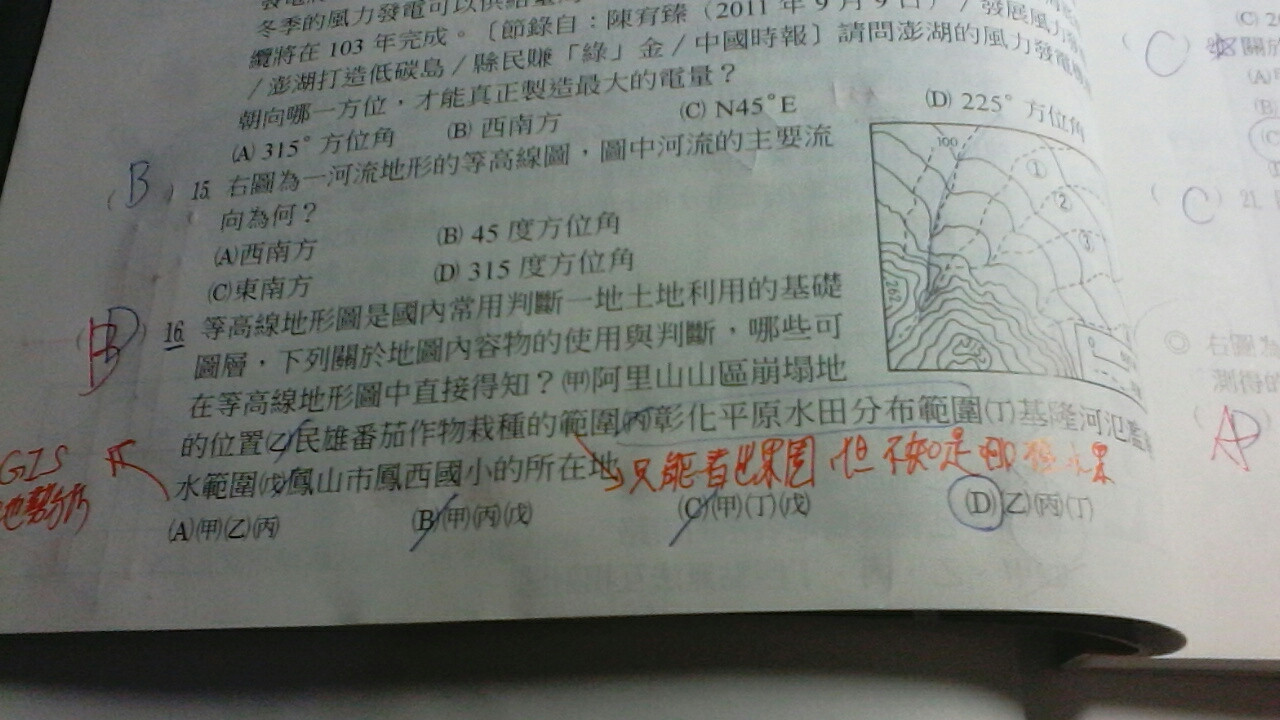 冬季的風力發電可以供給
纜將在 103 年完成。〔節錄自：陳宥臻（2011 年 9 月 9 日）/ 發展風力發
/ 澎湖打造低碳島 / 縣民賺「綠」金 / 中國時報〕請問澎湖的風力發電
朝向哪一方位，才能真正製造最大的電量？
(A) 315° 方位角 (B) 西南方 (C) N45°E (D) 225° 方位角
B
15. 右圖為一河流地形的等高線圖，圖中河流的主要流
向為何？
(A)西南方 (B) 45 度方位角
(C)東南方 (D) 315 度方位角
100
①
②
③
262
16. 等高線地形圖是國內常用判斷一地土地利用的基礎
圖層，下列關於地圖內容物的使用與判斷，哪些可
在等高線地形圖中直接得知？(甲)阿里山山區崩塌地
的位置(乙)民雄番茄作物栽種的範圍(丙)彰化平原水田分布範圍(丁)基隆河氾濫
水範圍(戊)鳳山市鳳西國小的所在地
只能看出果園 但不知是哪種水果
GIS
(A)(甲)(乙)(丙) (B)(甲)(丙)(戊) (C)(甲)(丁)(戊) (D)(乙)(丙)(丁)
C
關於
C
21.
右圖為
測得的